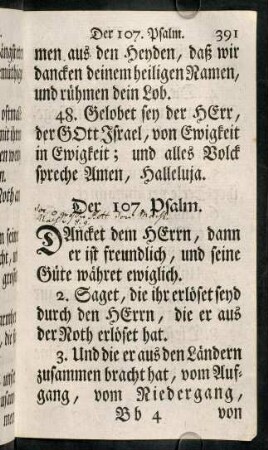 Der 107. Psalm. 391
men aus den Heyden, daß wir
dancken deinem heiligen Namen,
und rühmen dein Lob.
48. Gelobet sey der HErr,
der GOtt Israel, von Ewigkeit
in Ewigkeit; und alles Volck
spreche Amen, Halleluja.
Der 107. Psalm.
DAncket dem HErrn, dann
er ist freundlich, und seine
Güte währet ewiglich.
2. Saget, die ihr erlöset seyd
durch den HErrn, die er aus
der Noth erlöset hat.
3. Und die er aus den Ländern
zusammen bracht hat, vom Auf-
gang, vom Niedergang,
Bb 4 von